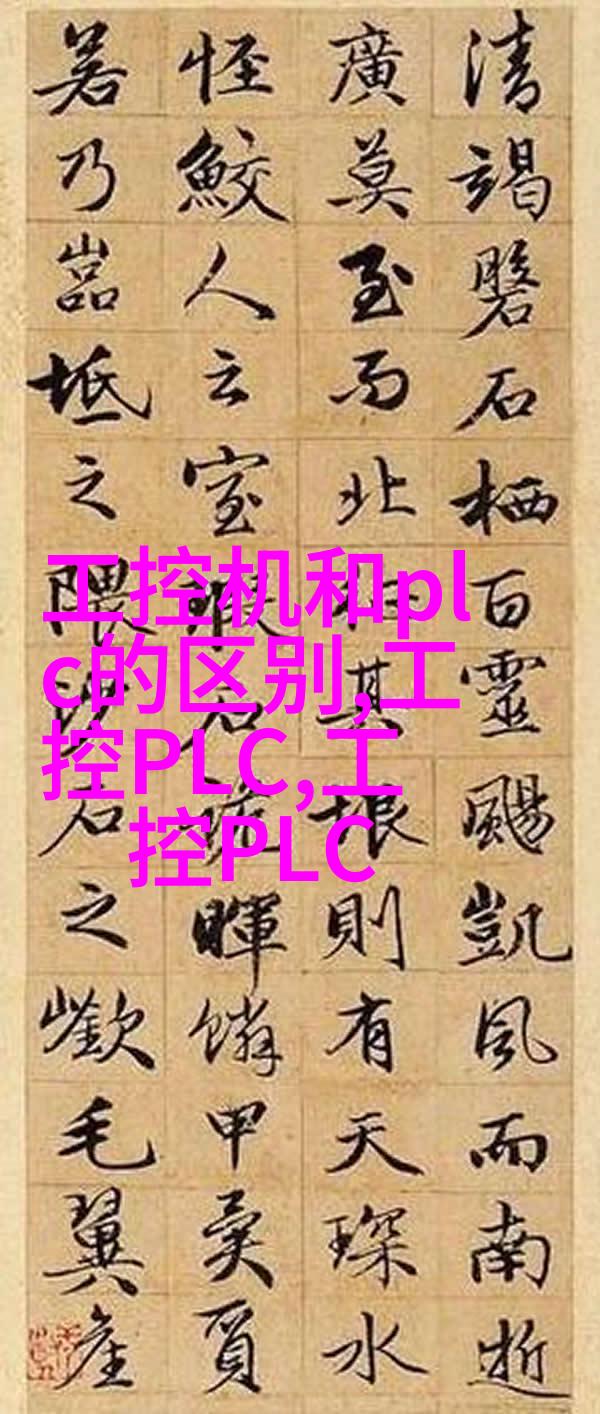 清竭磐石栖百靈颺凱風而南逝
廣莫至而北征其垠則有天琛水
怪鮫人之室瑕石詭暉鱗甲異質
若乃嵒坻之隈沙石之嶔毛翼產
工控机和pl
c的区别,工
控PLC,工
控PLC